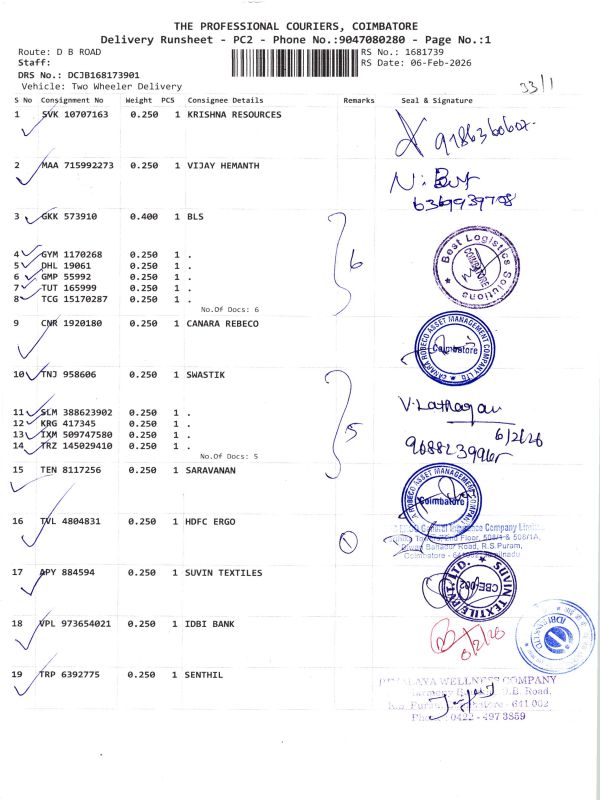 THE PROFESSIONAL COURIERS, COIMBATORE
Delivery Runsheet - PC2 - Phone No.:9047080280 - Page No.:1
Route: D B ROAD
RS No.: 1681739
Staff:
RS Date: 06-Feb-2026
DRS No.: DCJB168173901
Vehicle: Two Wheeler Delivery
33/1
S No Consignment No Weight PCS Consignee Details Remarks Seal & Signature
1 SVK 10707163 0.250 1 KRISHNA RESOURCES
2 MAA 715992273 0.250 1 VIJAY HEMANTH
6369939708
3 GKK 573910 0.400 1 BLS
4 GYM 1170268 0.250 1 .
5 DHL 19061 0.250 1 .
6 GMP 55992 0.250 1 .
7 TUT 165999 0.250 1 .
8 TCG 15170287 0.250 1 .
No.Of Docs: 6
6
Best Logistics Solutions
COIMBATORE
9 CNR 1920180 0.250 1 CANARA REBECO
CANARA ROBECO ASSET MANAGEMENT COMPANY LTD.
Coimbatore
10 TNJ 958606 0.250 1 SWASTIK
11 SLM 388623902 0.250 1 .
12 KRG 417345 0.250 1 .
13 IXM 509747580 0.250 1 .
14 TRZ 145029410 0.250 1 .
No.Of Docs: 5
5
6/2/26
15 TEN 8117256 0.250 1 SARAVANAN
ROBECO ASSET MANAGEMENT COMPANY
Coimbatore
16 TVL 4804831 0.250 1 HDFC ERGO
1
General Insurance Company Limited
Floor, 508/1 & 508/1A,
Diwan Bahadur Road, R.S.Puram,
Coimbatore
17 APY 884594 0.250 1 SUVIN TEXTILES
SUVIN TEXTILE PVT. LTD.
CBE
18 VPL 973654021 0.250 1 IDBI BANK
6/2/26
IDBI
19 TRP 6392775 0.250 1 SENTHIL
WELLNESS COMPANY
D.B. Road,
641 002
Phone: 0422 - 497 3859